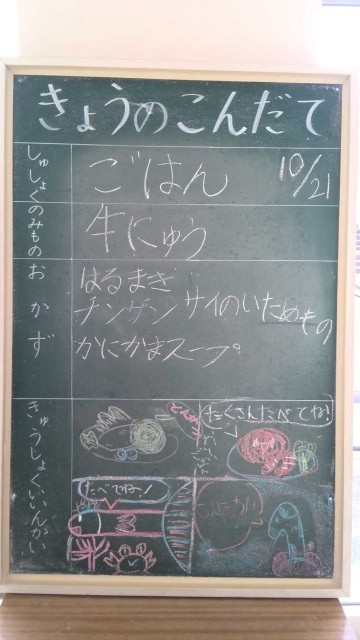 きょうのこんだて
しゅしょく
ごはん
10/21
のみもの
牛にゅう
おかず
はるまき
チンゲンサイのいためもの
かにかまスープ
きゅうしょくいいんかい
たくさんたべてね!
たべてね!
こんにちわ